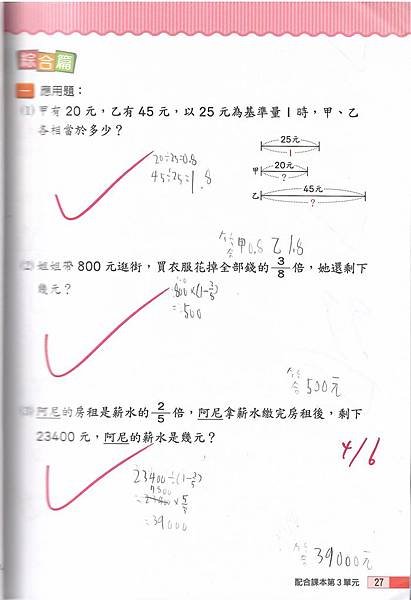 綜合篇
一 應用題：
(1) 甲有 20 元，乙有 45 元，以 25 元為基準量 1 時，甲、乙
各相當於多少？
25元
1
甲 20元
?
乙 45元
?
20÷25=0.8
45÷25=1.8
答 甲0.8 乙1.8
(2) 姐姐帶 800 元逛街，買衣服花掉全部錢的 3/8 倍，她還剩下
幾元？
800×(1-3/8)
=500
答 500元
(3) 阿尼的房租是薪水的 2/5 倍，阿尼拿薪水繳完房租後，剩下
23400 元，阿尼的薪水是幾元？
4/6
23400÷(1-2/5)
7800
=23400×5/3
=39000
答 39000元
配合課本第 3 單元 27